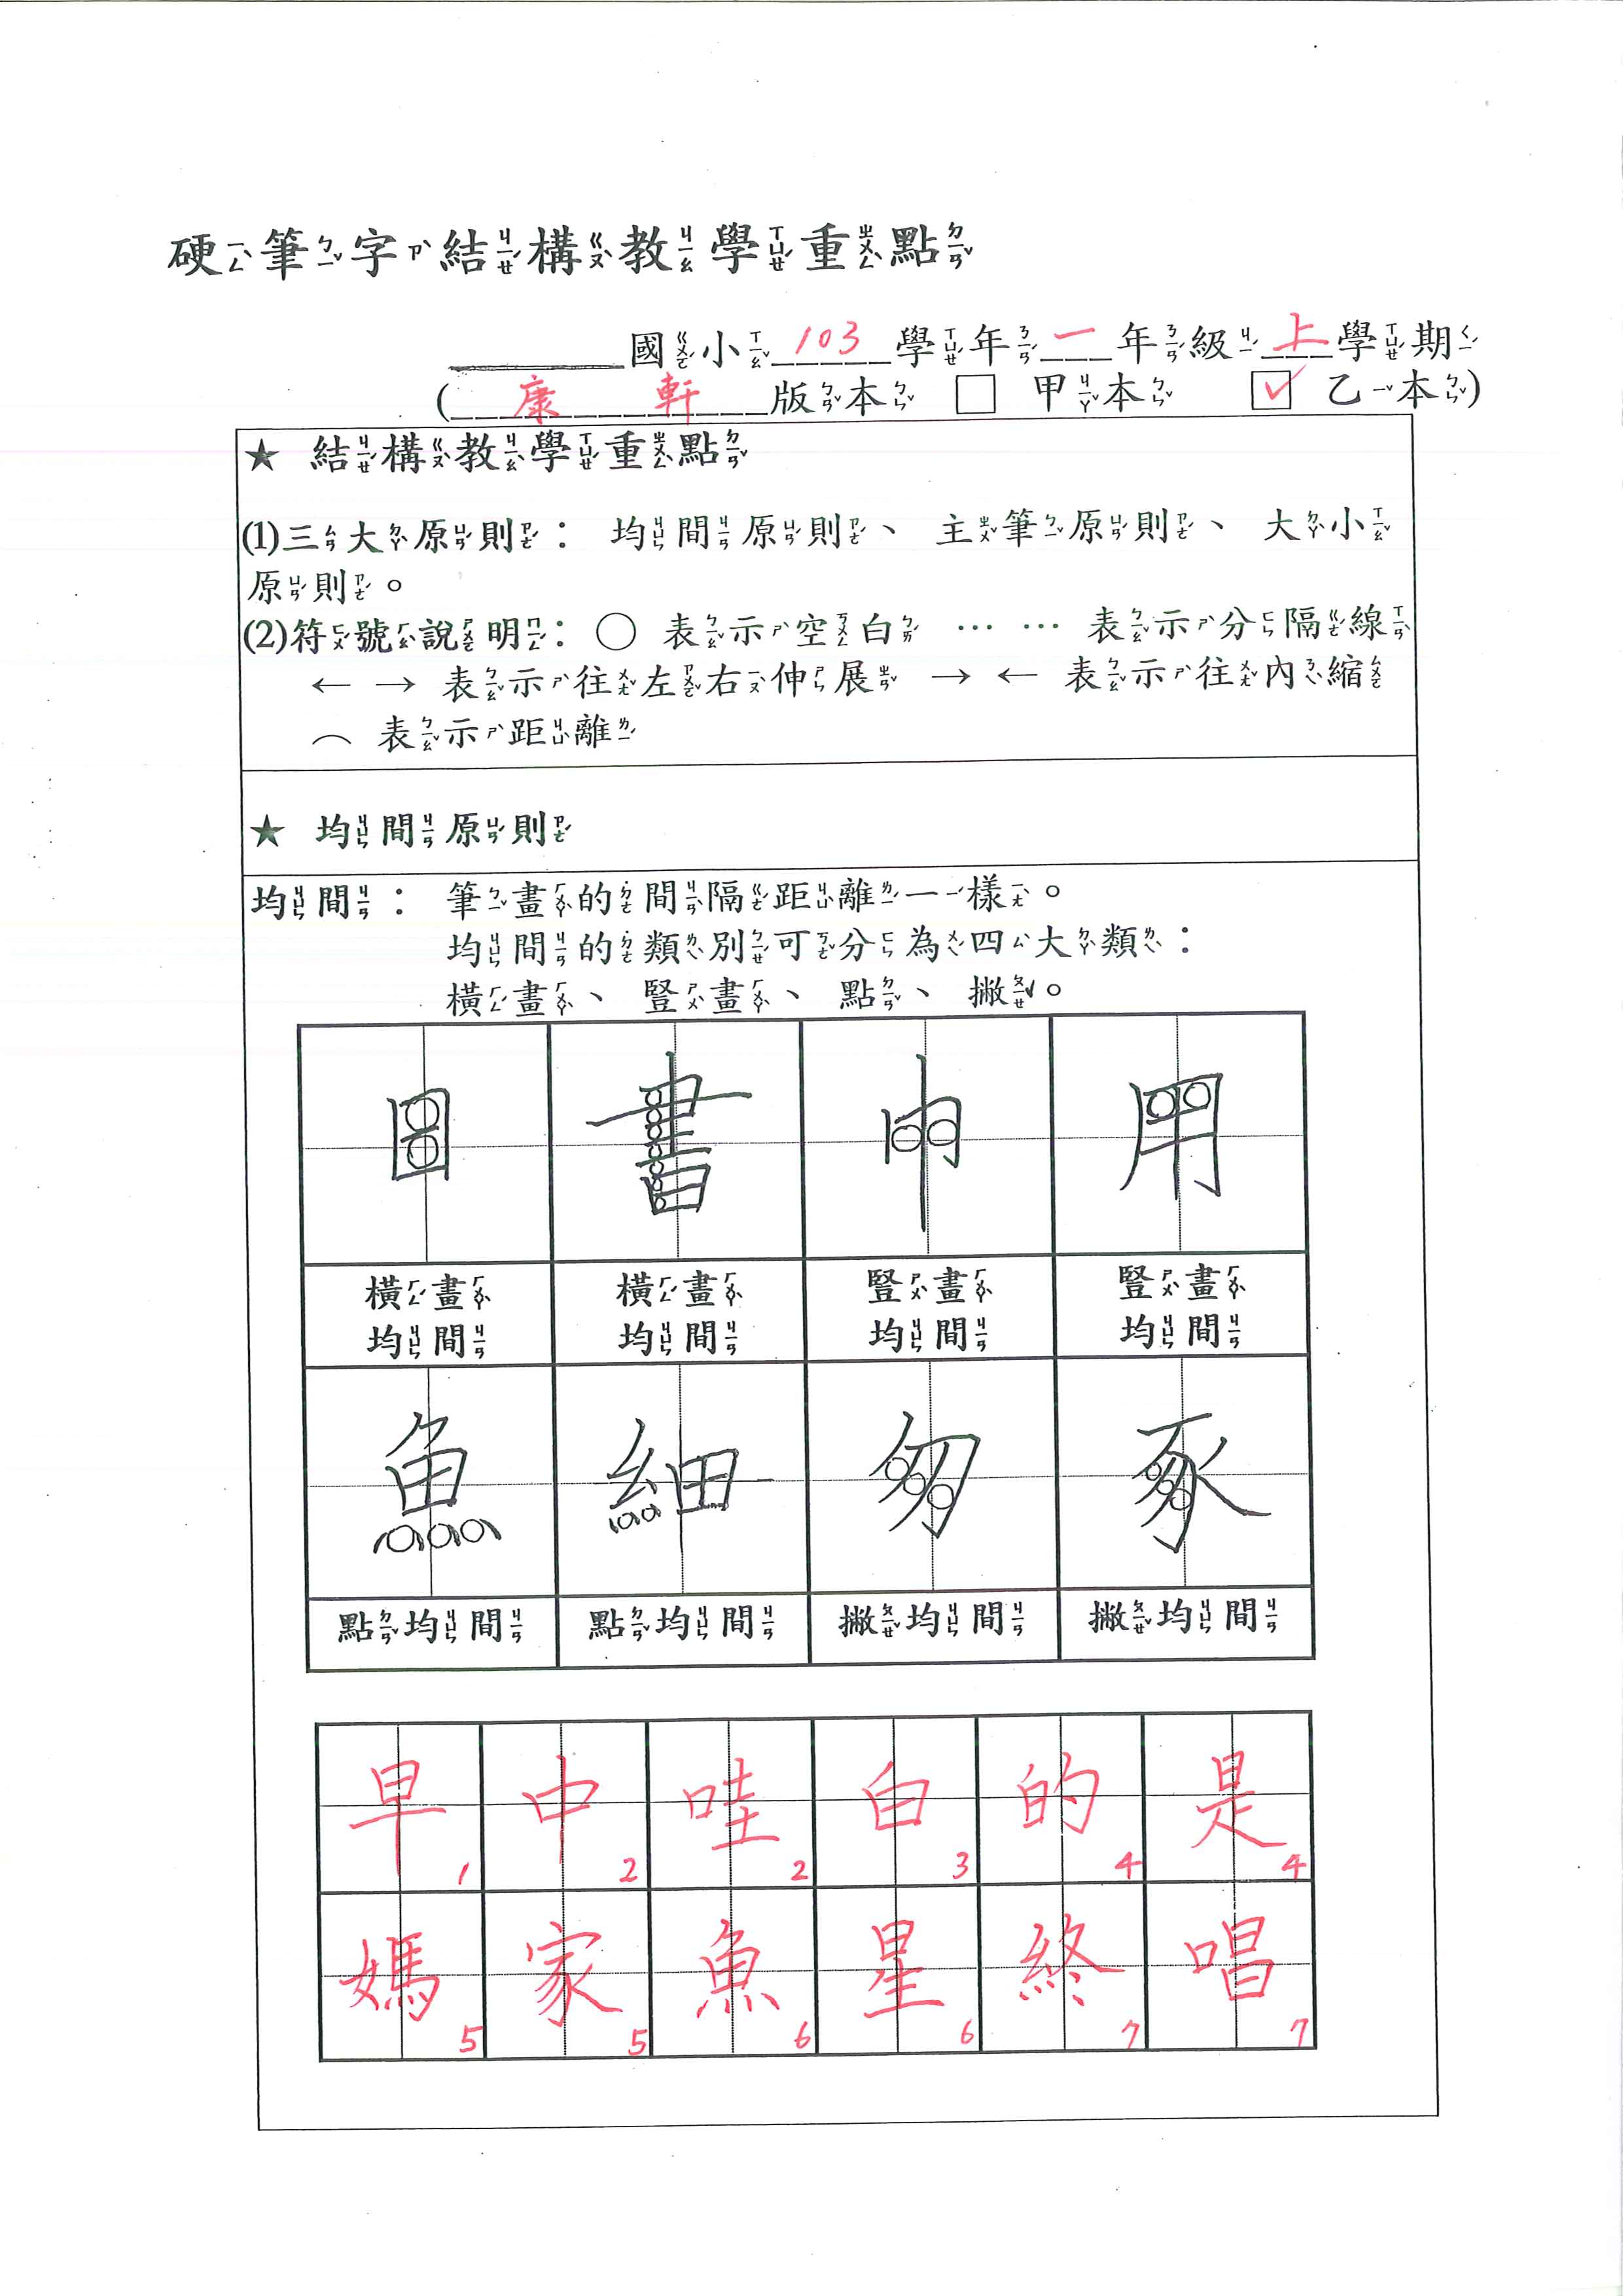 硬筆字結構教學重點
國小103學年一年級上學期
(康軒版本 □ 甲本 ☑ 乙本)
★ 結構教學重點
(1)三大原則：均間原則、主筆原則、大小
原則。
(2)符號說明：○ 表示空白 …… 表示分隔線
← → 表示往左右伸展 → ← 表示往內縮
⌒ 表示距離
★ 均間原則
均間：筆畫的間隔距離一樣。
均間的類別可分為四大類：
橫畫、豎畫、點、撇。
日 書 申 用
橫畫 橫畫 豎畫 豎畫
均間 均間 均間 均間
魚 細 匆 豕
點均間 點均間 撇均間 撇均間
早 中 哇 白 的 是
1 2 2 3 4 4
媽 家 魚 星 終 唱
5 5 6 6 7 7